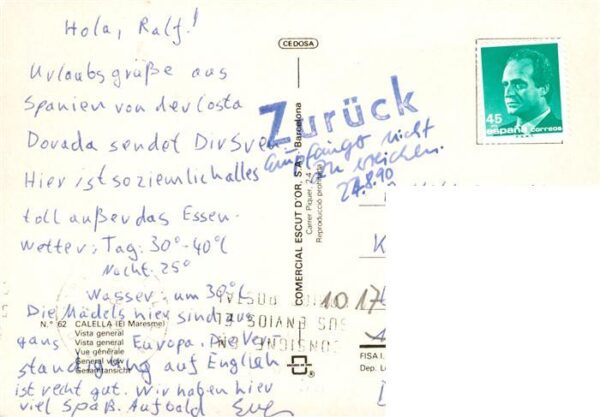 Hola, Ralf!
Urlaubsgrüße aus
Spanien von der Costa
Dorada sendet Dir Sven
Hier ist so ziemlich alles
toll außer das Essen.
Wetter: Tag: 30°-40°C
Nacht: 25°
Wasser: um 30°C
Die Mädels hier sind aus
ganz Europa. Die Ver-
ständigung auf English
ist recht gut. Wir haben hier
viel Spaß. Auf bald
N.º 62 CALELLA (El Maresme)
Vista general
Vista general
Vue générale
General view
Gesamtansicht
CEDOSA
COMERCIAL ESCUT D'OR, S.A. Barcelona
Carrer Piquer, 2-4
Reproducció prohibida
Zurück
Empfänger nicht
zu erreichen.
27.8.90
45
españa correos
CONSIGNE EN
SUS ENVIOS EL
POSTAL
K
1017
FISA I.
Dep. L